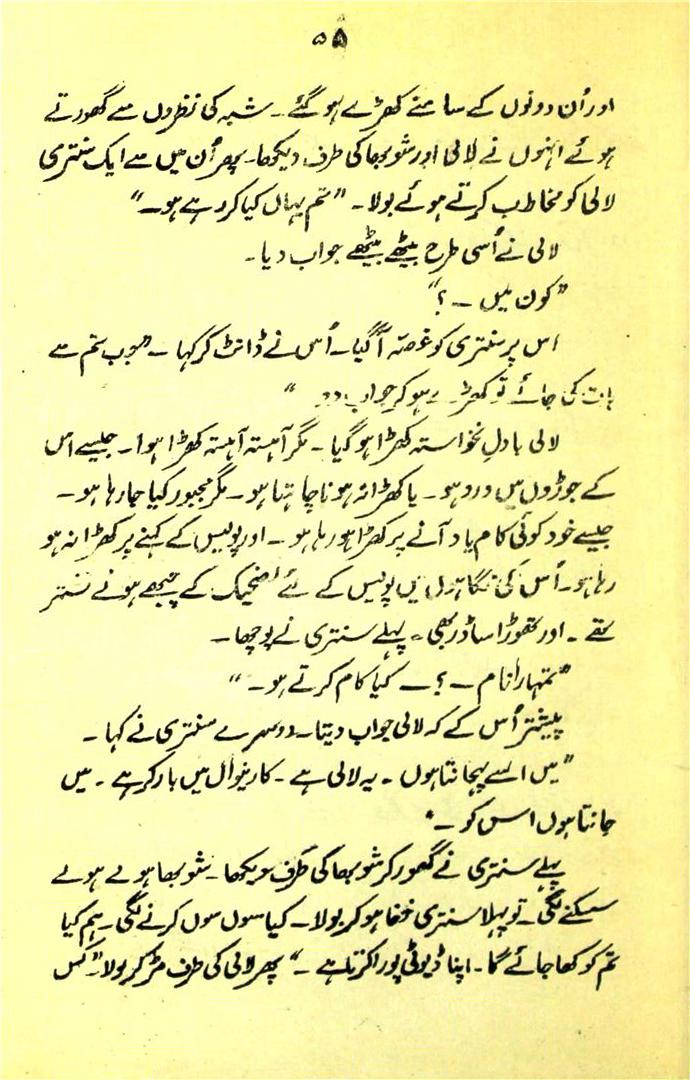 ۵۵
اور اُن دونوں کے سامنے کھڑے ہو گئے۔ شبہ کی نظروں سے گھورتے
ہوئے انہوں نے لالی اور شوبھا کی طرف دیکھا۔ پھر اُن میں سے ایک سنتری
لالی کو مخاطب کرتے ہوئے بولا۔ "تم یہاں کیا کر رہے ہو۔"
لالی نے اُسی طرح بیٹھے بیٹھے جواب دیا۔
"کون میں ۔ ؟"
اس پر سنتری کو غصّہ آ گیا۔ اُس نے ڈانٹ کر کہا ۔ "جب تم سے
بات کی جائے تو کھڑے ہو کر جواب دو۔ "
لالی بادلِ نخواستہ کھڑا ہو گیا ۔ مگر آہستہ آہستہ کھڑا ہوا۔ جیسے اس
کے جوڑوں میں درد ہو۔ یا کھڑا نہ ہونا چاہتا ہو۔ مگر مجبور کیا جا رہا ہو۔
جیسے خود کوئی کام یاد آنے پر کھڑا ہو رہا ہو ۔ اور پولیس کے کہنے پر کھڑا نہ ہو
رہا ہو۔ اُس کی نگاہوں میں پولیس کے لئے تضحیک کے چبھے ہوئے نشتر
تھے ۔ اور تھوڑا سا ڈر بھی۔ پہلے سنتری نے پوچھا۔
"تمہارا نام ۔ ؟ ۔ کیا کام کرتے ہو۔ "
پیشتر اُس کے کہ لالی جواب دیتا۔ دوسرے سنتری نے کہا ۔
"میں اسے پہچانتا ہوں ۔ یہ لالی ہے ۔ کارنیوال میں بارکر ہے ۔ میں
جانتا ہوں اس کو ۔"
پہلے سنتری نے گھور کر شوبھا کی طرف دیکھا۔ شوبھا ہولے ہولے
سسکنے لگی ۔ تو پہلا سنتری خفا ہو کر بولا۔ کیا سوں سوں کرنے لگی۔ ہم کیا
تم کو کھا جائے گا۔ اپنا ڈیوٹی پورا کرتا ہے ۔" پھر لالی کی طرف مڑ کر بولا۔ "کس